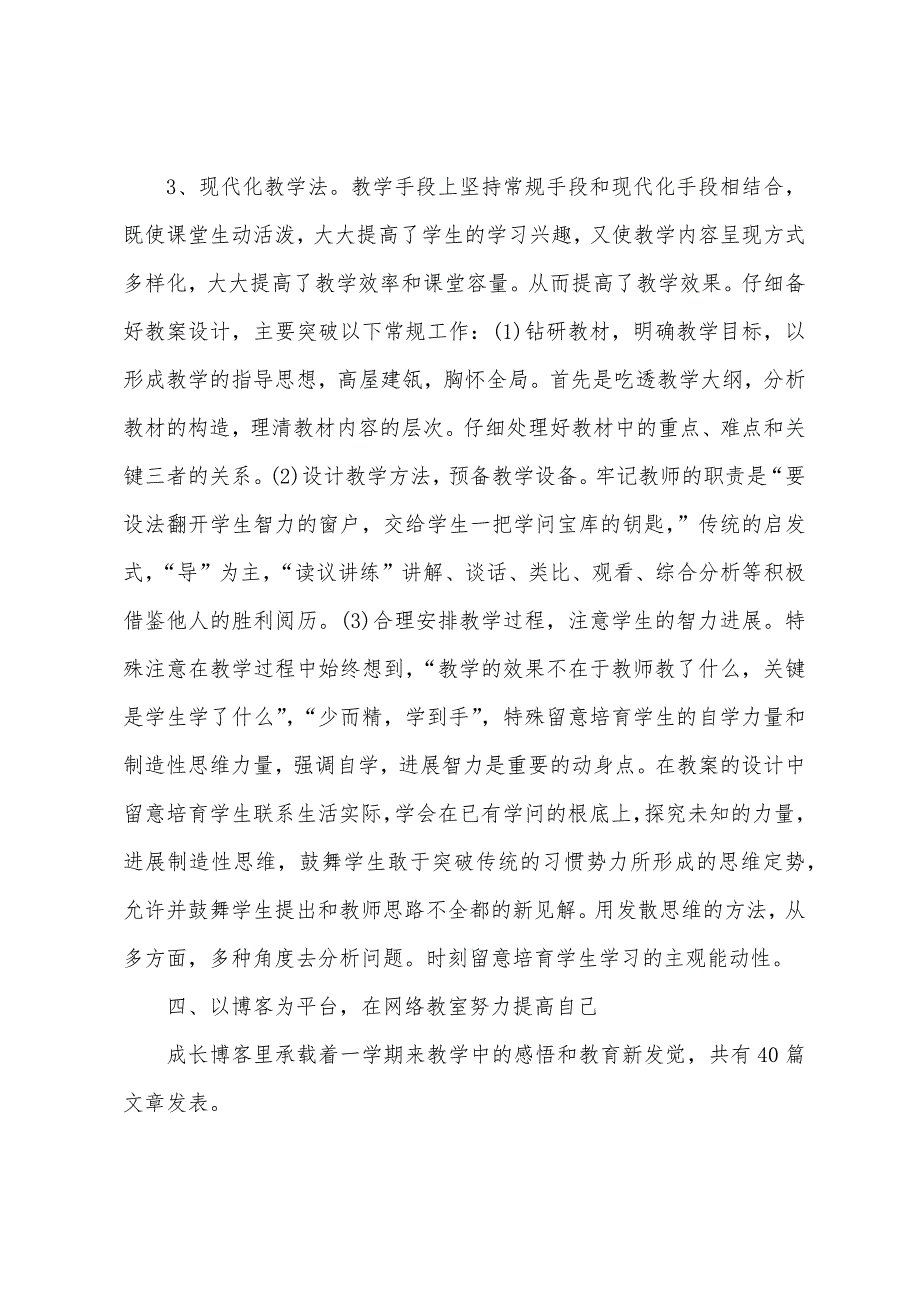 3、现代化教学法。教学手段上坚持常规手段和现代化手段相结合，
既使课堂生动活泼，大大提高了学生的学习兴趣，又使教学内容呈现方式
多样化，大大提高了教学效率和课堂容量。从而提高了教学效果。仔细备
好教案设计，主要突破以下常规工作：(1)钻研教材，明确教学目标，以
形成教学的指导思想，高屋建瓴，胸怀全局。首先是吃透教学大纲，分析
教材的构造，理清教材内容的层次。仔细处理好教材中的重点、难点和关
键三者的关系。(2)设计教学方法，预备教学设备。牢记教师的职责是“要
设法翻开学生智力的窗户，交给学生一把学问宝库的钥匙，”传统的启发
式，“导”为主，“读议讲练”讲解、谈话、类比、观看、综合分析等积极
借鉴他人的胜利阅历。(3)合理安排教学过程，注意学生的智力进展。特
殊注意在教学过程中始终想到，“教学的效果不在于教师教了什么，关键
是学生学了什么”，“少而精，学到手”，特殊留意培育学生的自学力量和
制造性思维力量，强调自学，进展智力是重要的动身点。在教案的设计中
留意培育学生联系生活实际，学会在已有学问的根底上，探究未知的力量，
进展制造性思维，鼓舞学生敢于突破传统的习惯势力所形成的思维定势，
允许并鼓舞学生提出和教师思路不全都的新见解。用发散思维的方法，从
多方面，多种角度去分析问题。时刻留意培育学生学习的主观能动性。
四、以博客为平台，在网络教室努力提高自己
成长博客里承载着一学期来教学中的感悟和教育新发觉，共有 40 篇
文章发表。